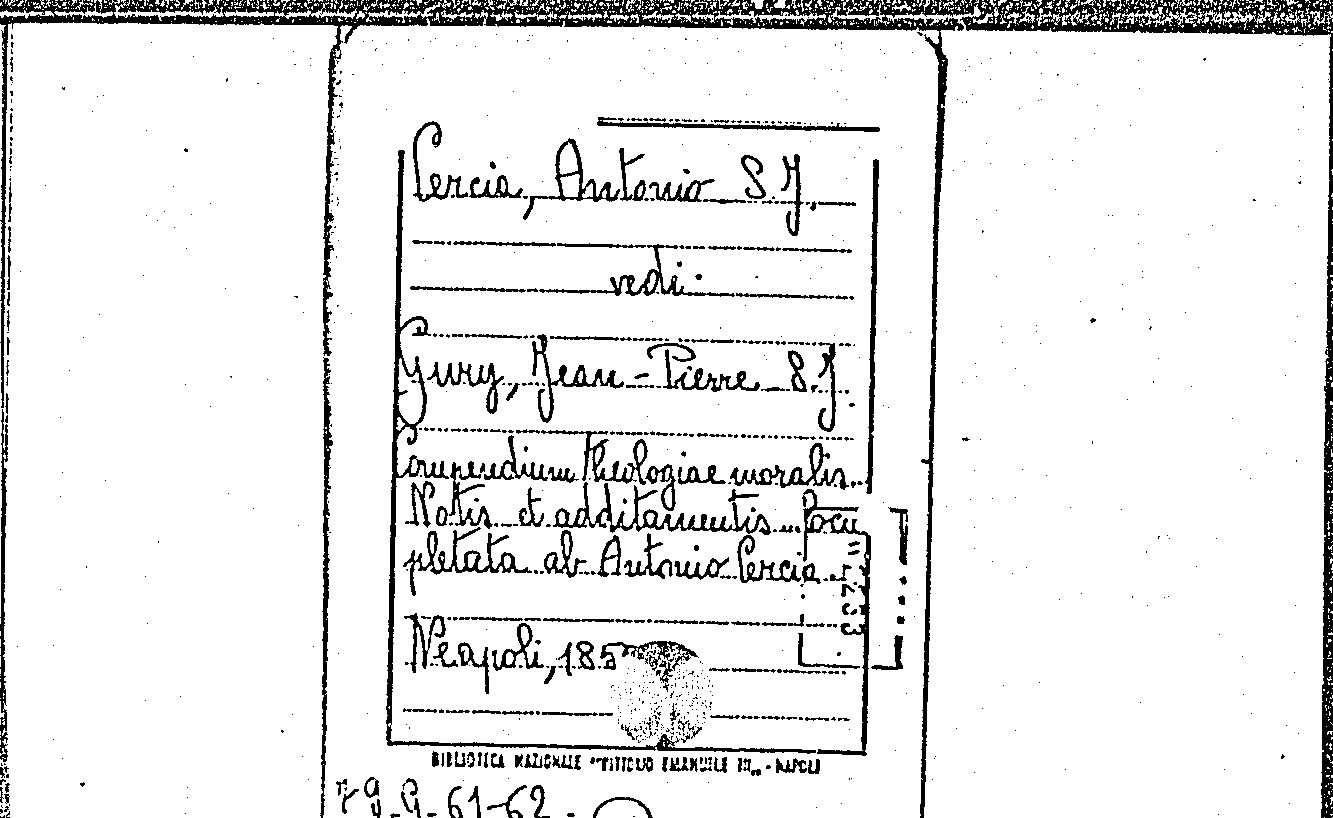 Cercia, Antonio S.J.
vedi:
Gury, Jean-Pierre S.J.
Compendium theologiae moralis..
Notis et additamentis... locu
pletata ab Antonio Cercia.
Neapoli, 185
BIBLIOTECA NAZIONALE "VITTORIO EMANUELE III" - NAPOLI
G-61-62.